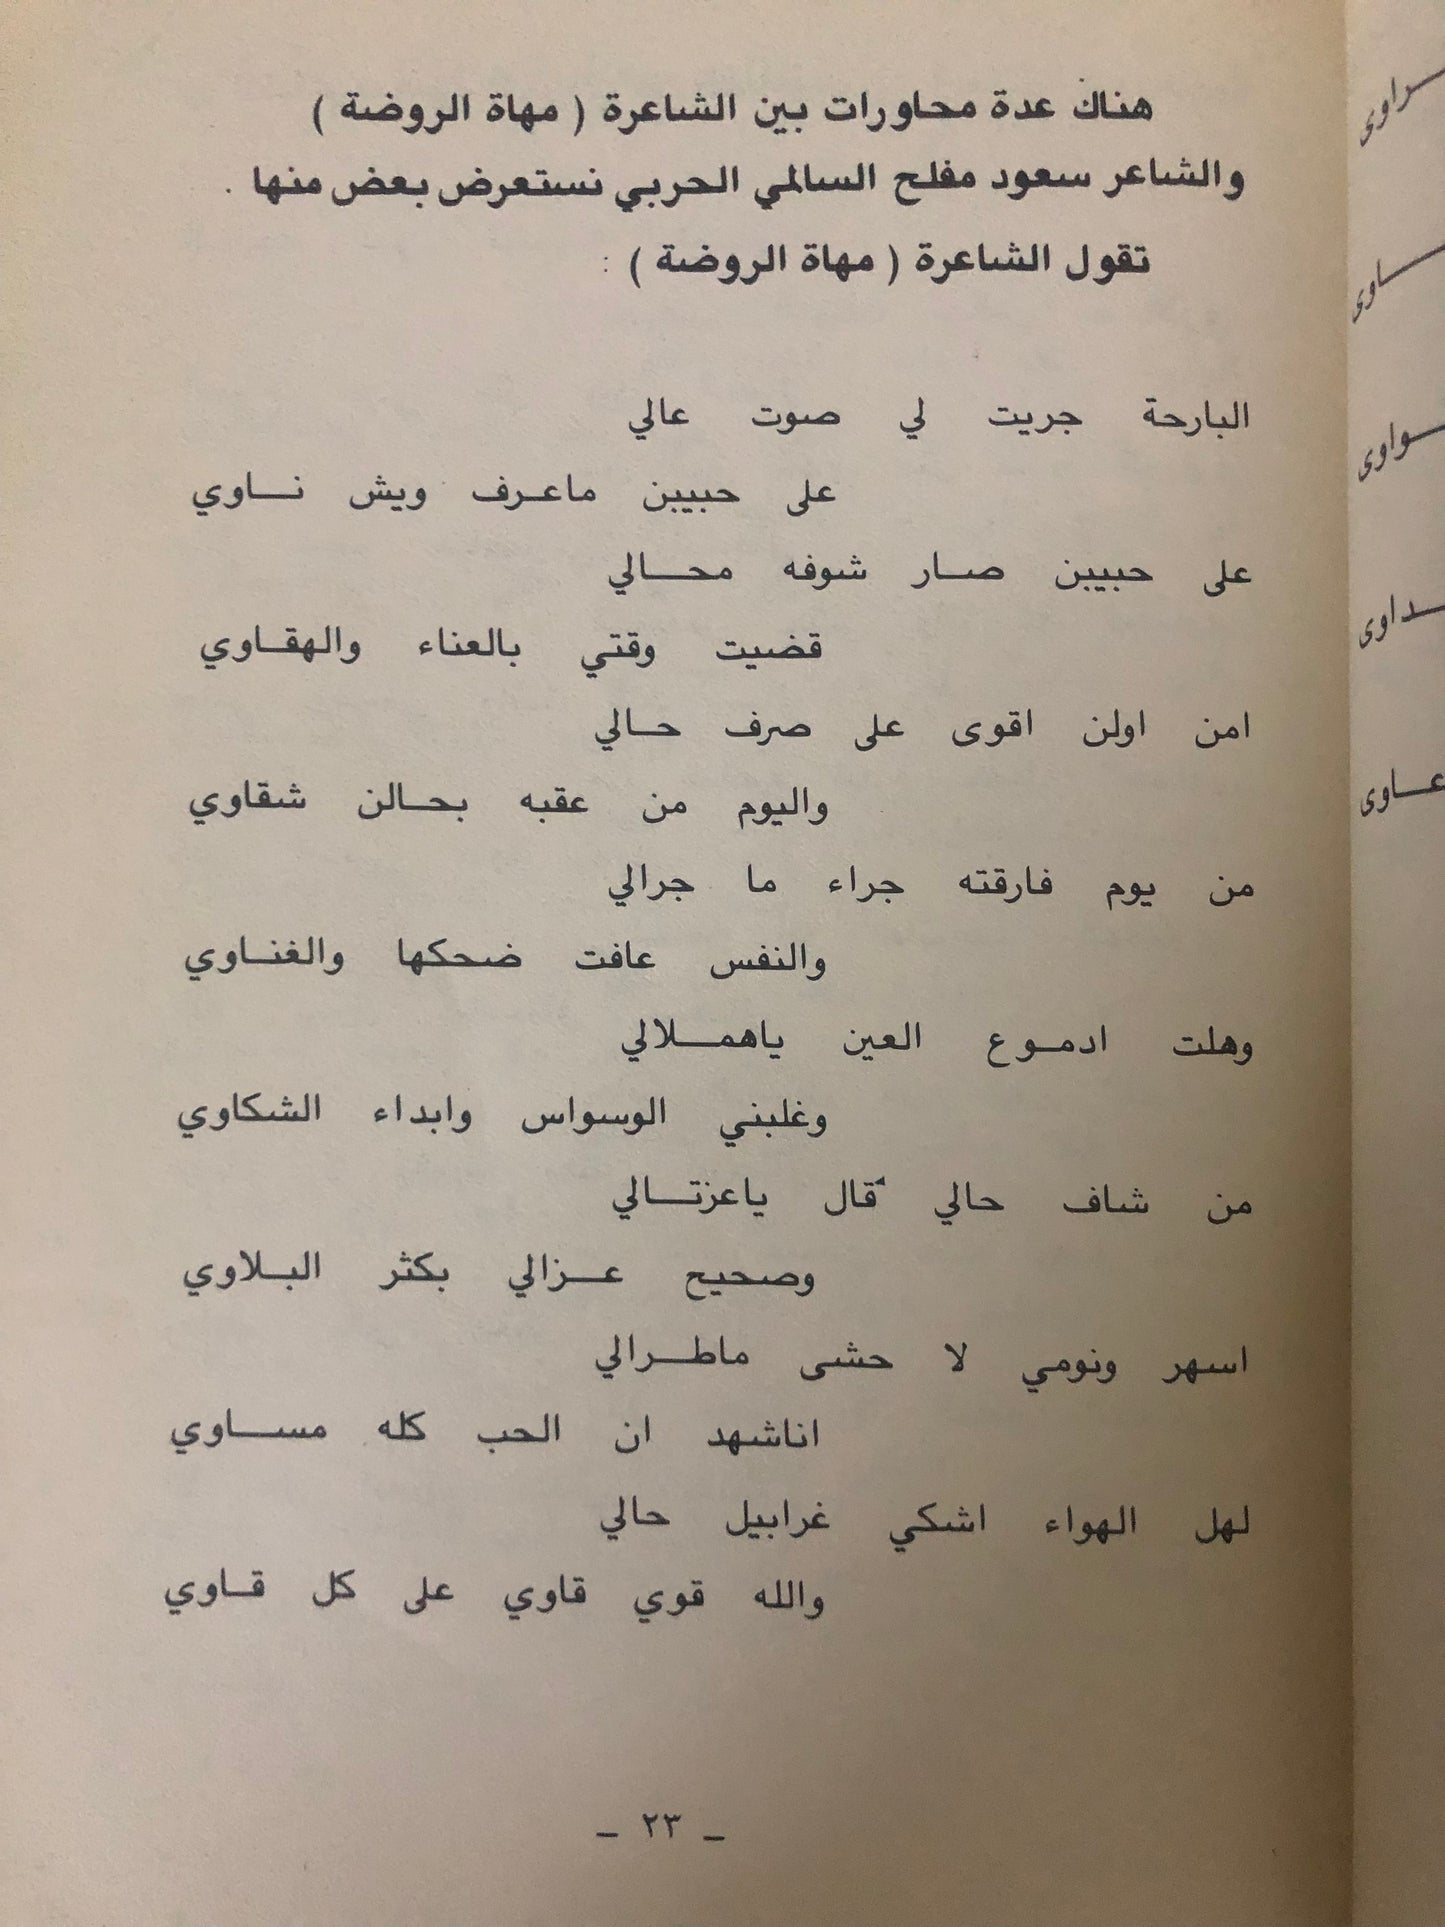 هناك عدة محاورات بين الشاعرة ( مهاة الروضة )
والشاعر سعود مفلح السالمي الحربي نستعرض بعض منها .
تقول الشاعرة ( مهاة الروضة ) :
البارحة جريت لي صوت عالي
على حبيبن ماعرف ويش ناوي
على حبيبن صار شوفه محالي
قضيت وقتي بالعناء والهقاوي
امن اولن اقوى على صرف حالي
واليوم من عقبه بحالن شقاوي
من يوم فارقته جراء ما جرالي
والنفس عافت ضحكها والغناوي
وهلت ادموع العين ياهملالي
وغلبني الوسواس وابداء الشكاوي
من شاف حالي قال ياعزتالي
وصحيح عزالي بكثر البلاوي
اسهر ونومي لا حشى ماطرالي
اناشهد ان الحب كله مساوي
لهل الهواء اشكي غرابيل حالي
والله قوي قاوي على كل قاوي
ـ ٢٣ ـ